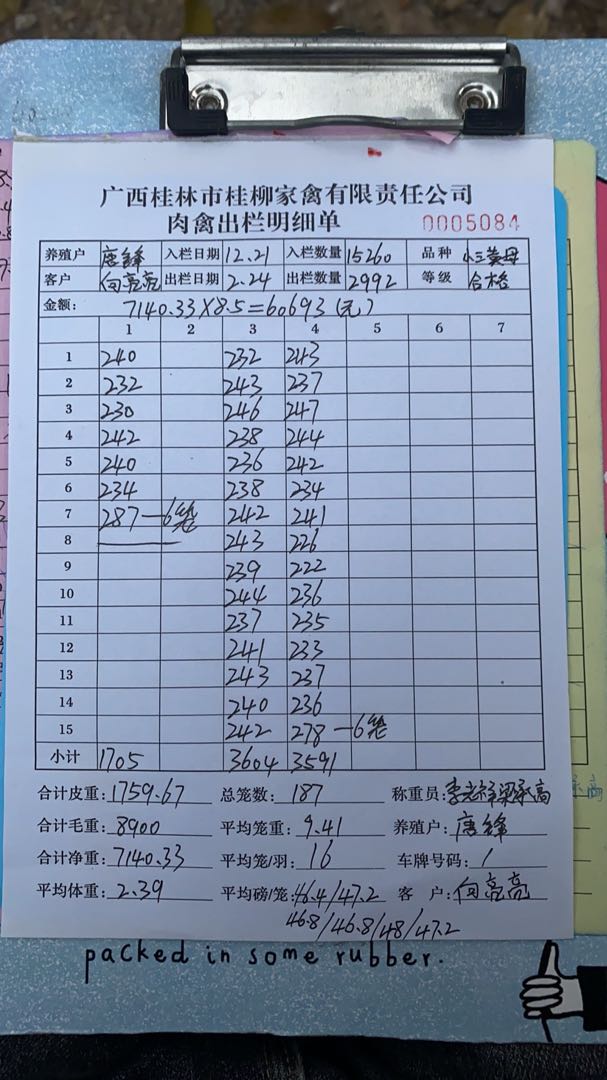 广西桂林市桂柳家禽有限责任公司
肉禽出栏明细单 0005084
养殖户 唐锋 入栏日期 12.21 入栏数量 15260 品种 小三黄母
客户 向亮亮 出栏日期 2.24 出栏数量 2992 等级 合格
金额: 7140.33×8.5=60693(元)
1 2 3 4 5 6 7
1 240 232 243
2 232 243 237
3 230 246 247
4 242 238 244
5 240 236 242
6 234 238 234
7 287—6笼 242 241
8 243 226
9 239 222
10 244 236
11 237 235
12 241 233
13 243 237
14 240 236
15 242 278—6笼
小计 1705 3604 3591
合计皮重: 1759.67 总笼数: 187 称重员:
合计毛重: 8900 平均笼重: 9.41 养殖户: 唐锋
合计净重: 7140.33 平均笼/羽: 16 车牌号码: /
平均体重: 2.39 平均磅/笼: 46.4/47.2 客户: 向亮亮
46.8/46.8/48/47.2
packed in some rubber.